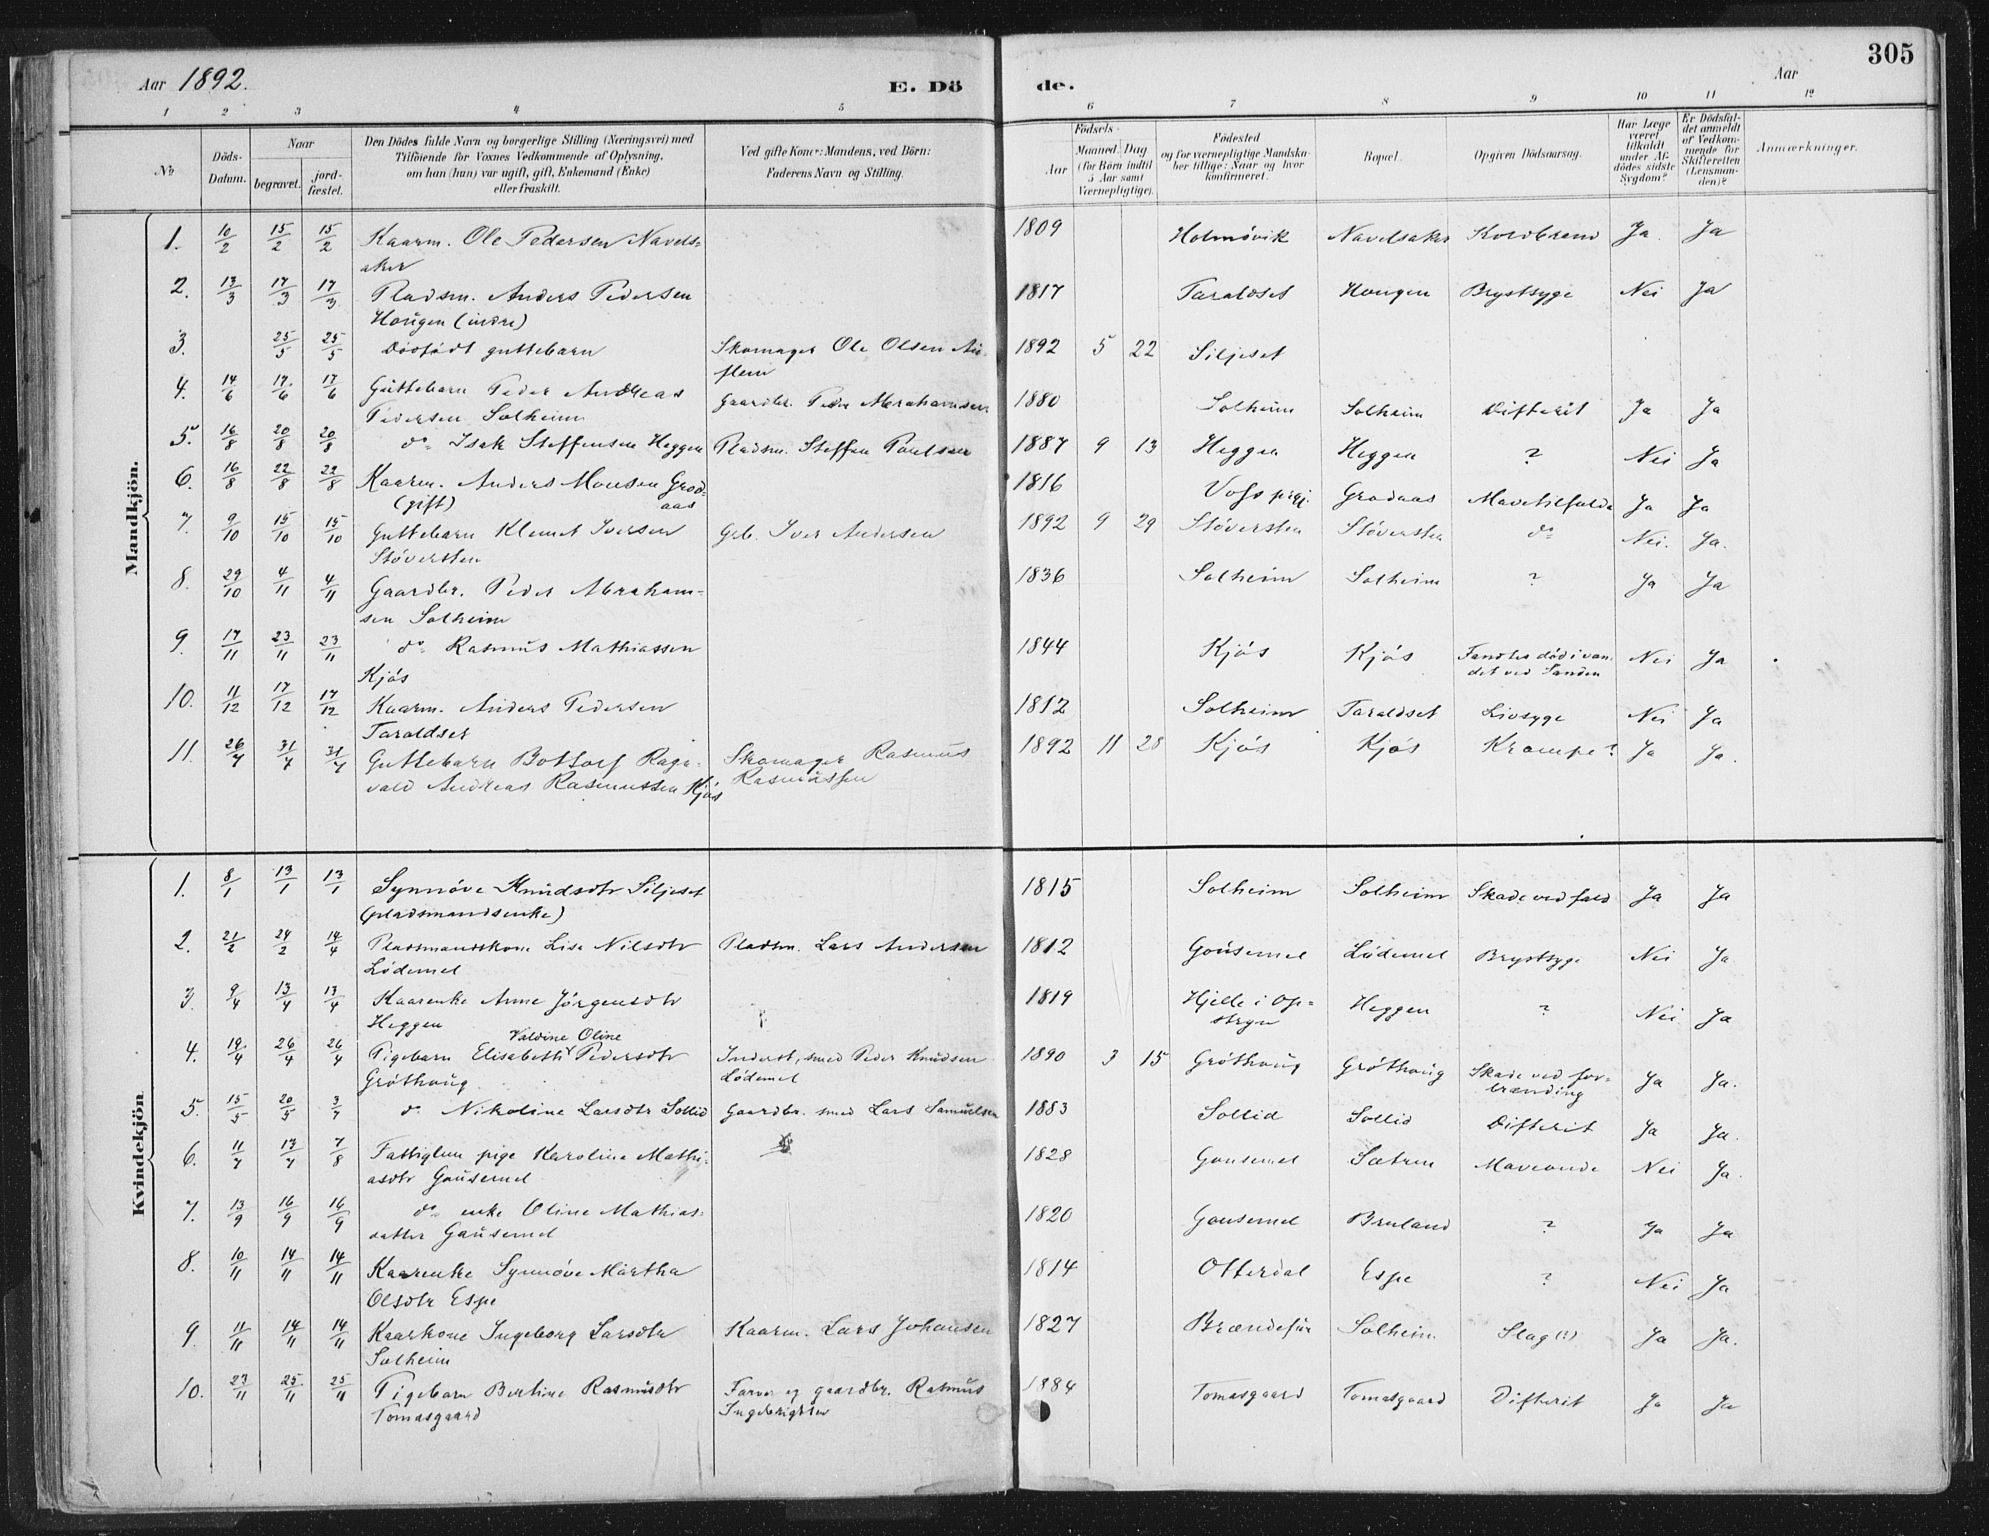 305
Aar 1892.
E. Dö
de.
Aar
1 2 3 4 5 6 7 8 9 10 11 12
No
Döds-Datum.
Naar
begravet.
jordfæstet.
Den Dödes fulde Navn og borgerlige Stilling (Næringsvei) med
Tilföiende for Voxnes Vedkommende af Oplysning,
om han (hun) var ugift, gift, Enkemand (Enke)
eller fraskilt.
Ved gifte Koner: Mandens, ved Börn:
Faderens Navn og Stilling.
Födsels-
Aar
Maaned. Dag
(for Börn indtil
5 Aar samt
Værnepligtige).
Födested
og for værnepligtige Mandskaber tillige: Naar og hvor
konfirmeret.
Bopæl.
Opgiven Dödsaarsag.
Har Læge
været
tilkaldt
under Afdödes sidste
Sygdom?
Er Dödsfaldet anmeldt
af Vedkommende for
Skifteretten
(Lensmanden)?
Anmærkninger.
Mandkjön.
1. 10/2 15/2 15/2 Kaarm. Ole Pedersen Navelsaker 1809 Holmövik Navelsaker Koldbrand Ja. Ja
2. 13/3 17/3 17/3 Pladsm. Anders Pedersen Hougen (indre) 1817 Taraldset Hougen Brystsyge Nei Ja
3. 25/5 25/5 Dödfödt guttebarn Skomager Ole Olsen 1892 5 22 Siljeset
4. 14/6 17/6 17/6 Guttebarn Peder Andreas Pedersen Solheim Gaardbr. Peder Abrahamsen 1880 Solheim Solheim Difterit Ja Ja
5. 16/8 20/8 20/8 do Isak Steffensen Heggen Pladsm. Steffen Paulsen 1887 9 13 Heggen Heggen ? Nei Ja
6. 16/8 22/8 22/8 Kaarm. Anders Monsen Grodaas (gift) 1816 Voss prgj. Grodaas Mavetilfælde Ja Ja
7. 9/10 15/10 15/10 Guttebarn Klemet Iversen Stöversten Grb. Iver Andersen 1892 9 29 Stöversten Stöversten do Nei. Ja.
8. 29/10 4/11 4/11 Gaardbr. Peder Abrahamsen Solheim 1836 Solheim Solheim ? Ja Ja
9. 17/11 23/11 23/11 do Rasmus Mathiassen Kjös 1844 Kjös Kjös Fandtes död i vandet ved Sanden Nei Ja
10. 11/12 17/12 17/12 Kaarm. Anders Pedersen Taraldset 1812 Solheim Taraldset Livsyge Nei Ja
11. 26/7 31/7 31/7 Guttebarn Bottolf Ragnvald Andreas Rasmussen Kjös Skomager Rasmus Rasmussen 1892 11 28 Kjös Kjös Krampe? Ja Ja.
Kvindekjön.
1. 8/1 13/1 13/1 Synnöve Knudsdtr Siljeset (pladsmandsenke) 1815 Solheim Solheim Skade ved fald Ja Ja
2. 21/2 24/2 14/4 Pladsmandskone Lise Nilsdtr Lödemel Pladsm. Lars Andersen 1812 Gousemel Lödemel Brystsyge Nei Ja
3. 9/4 13/4 13/4 Kaarenke Anne Jörgensdtr Heggen 1819 Hjelle i Opstryn Heggen ? Nei Ja
4. 19/4 26/4 26/4 Pigebarn Elisabeth Valdine Oline Pedersdtr Gröthoug Inderst, smed Peder Knudsen Lödemel 1890 3 15 Gröthoug Gröthoug Skade ved forbrænding Ja Ja.
5. 15/5 20/5 3/7 do Nikoline Larsdtr Sollid Gaardbr. smed Lars Samuelsen 1883 Sollid Sollid Difterit Ja Ja.
6. 11/7 17/7 7/8 Fattiglem pige Karoline Mathiasdtr Gousemel 1828 Gousemel Sætren Maveonde Nei Ja.
7. 13/9 16/9 16/9 do enke Oline Mathiasdatter Gausemel 1820 Gousemel Bruland ? Ja Ja
8. 10/11 14/11 14/11 Kaarenke Synnöve Martha Olsdtr Espe 1814 Otterdal Espe ? Nei Ja
9. 11/11 14/11 14/11 Kaarkone Ingeborg Larsdtr Solheim Kaarm. Lars Johansen 1827 Solheim Slag (?) Ja Ja.
10. 23/11 25/11 25/11 Pigebarn Bertine Rasmusdtr Tomasgaard Farver og gaardbr. Rasmus Ingebrigtsen 1884 Tomasgaard Tomasgaard Difterit Ja Ja